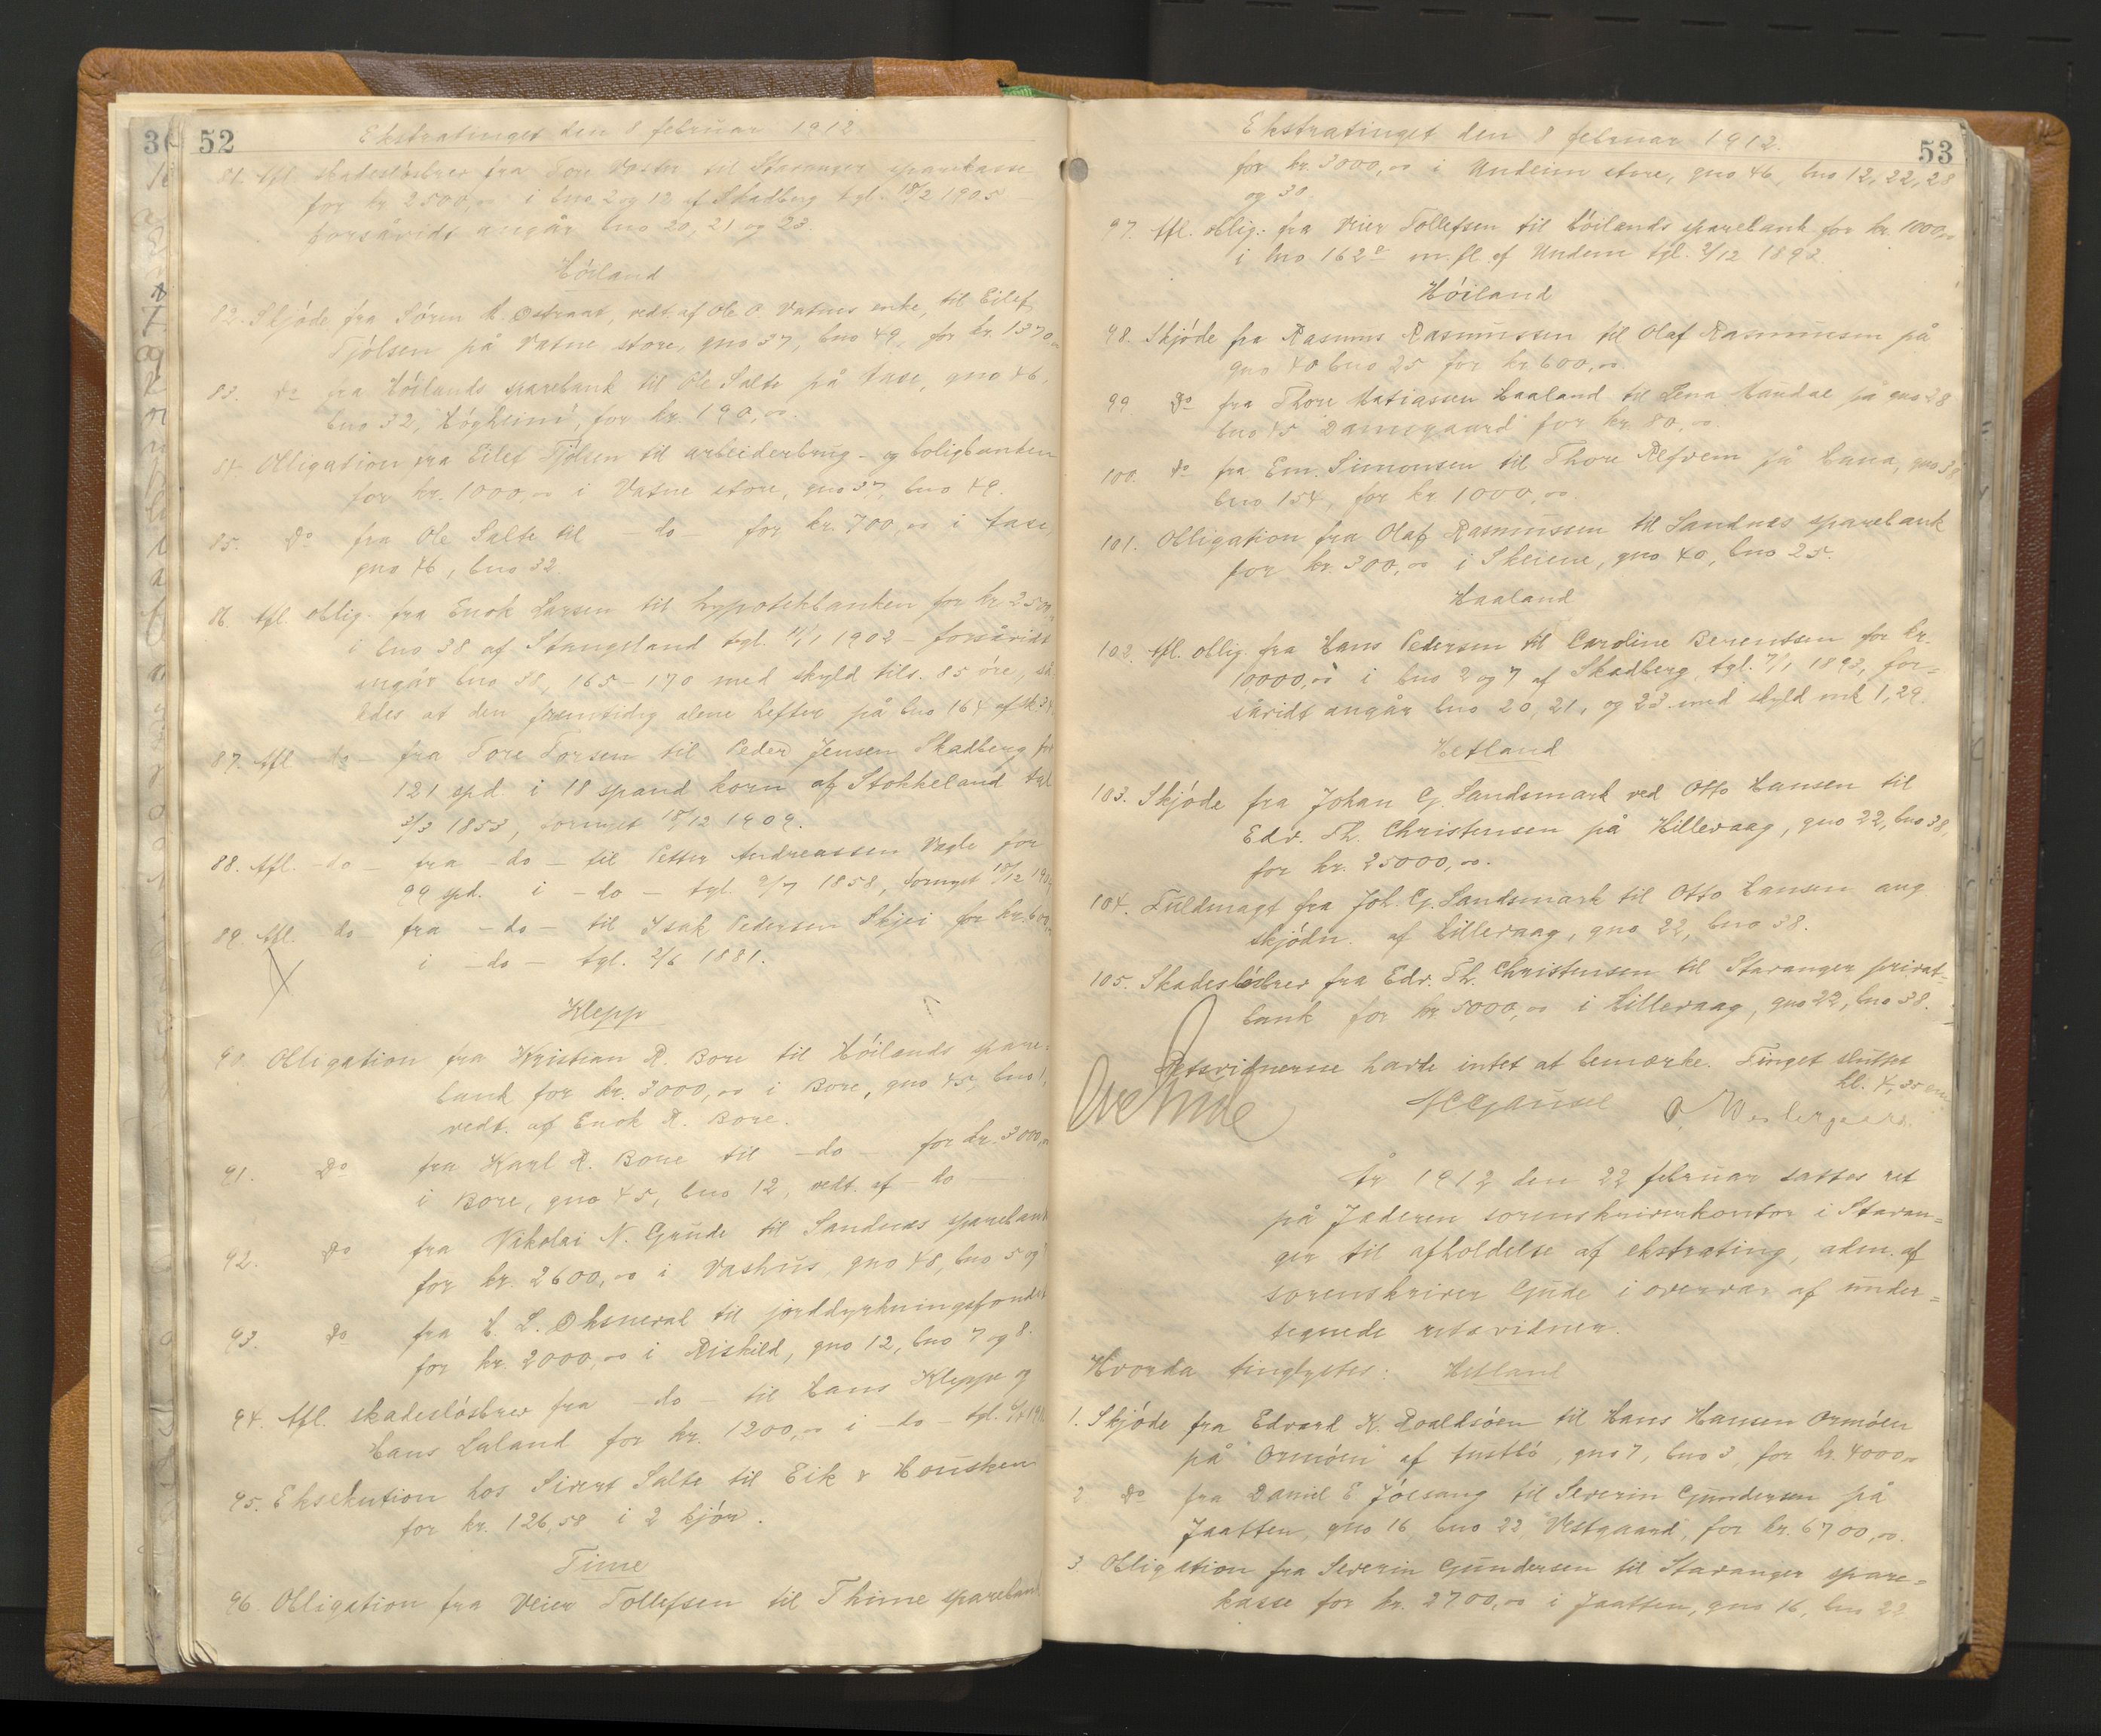 52
Ekstratinget den 8 februar 1912
81. Afl. skadesløsbrev fra Tore Vaslu til Stavanger sparekasse
for kr. 2500,00 i bno 2 og 12 af Skadberg tgl. 18/2 1905 –
forsåvidt angår bno 20, 21 og 23.
Høiland
82. Skjøde fra Søren M. Østraat, vedt. af Ole O. Vatnes enke, til Eilef
Tjølsen på Vatne store, gno 37, bno 49, for kr. 1370,00
83. Do fra Høilands sparebank til Ole Salte på Aase, gno 46,
bno 32, "Høgheim", for kr. 190,00.
84. Obligation fra Eilef Tjølsen til arbeiderbrug- og boligbanken
for kr. 1000,00 i Vatne store, gno 37, bno 49.
85. Do fra Ole Salte til – do – for kr. 700,00 i Aase,
gno 46, bno 32.
86. Afl. oblig. fra Enok Larsen til hypotekbanken for kr 2500,00
i bno 38 af Stangeland tgl. 11/1 1902 – forsåvidt
angår bno 38, 165–170 med skyld tils. 85 øre, så-
ledes at den fremtidig alene hefter på bno 164 af sk. 34
87. Afl – do – fra Tore Torsen til Peder Jensen Skadberg for
121 spd. i 18 spand korn af Stokkeland tgl
3/3 1853, fornyet 18/12 1909.
88. Afl. – do – fra – do – til Petter Andreassen Vagle for
99 spd. i – do – tgl. 2/7 1858, fornyet 18/12 1909
89. Afl. do fra – do – til Isak Pedersen Skjei for kr. 600,00
i – do – tgl. 2/6 1881.
Klepp
90. Obligation fra Kristian R. Bore til Høilands spare-
bank for kr. 3000,00 i Bore, gno 45, bno 1,
vedt. af Enok R. Bore.
91. Do fra Karl R. Bore til – do – for kr. 3000,00
i Bore, gno 45, bno 12, vedt. af – do –
92. Do fra Nikolai N. Grude til Sandnæs sparebank
for kr. 2600,00 i Vashus, gno 48, bno 5 og
93. Do fra L. L. Øksneval til jorddyrkningsfondet
for kr. 2000,00 i Riskild, gno 12, bno 7 og 8.
94. Afl. skadesløsbrev fra – do – til Hans Kleppe og
Hans Laland for kr. 1200,00 i – do – tgl.
95. Eksekution hos Sivert Salte til Eik & Housken
for kr. 126,58 i 2 kjør.
Time
96. Obligation fra Veier Tollefsen til Thime sparebank
53
Ekstratinget den 8 februar 1912.
for kr. 3000,00 i Undeim store, gno 46, bno 12, 22, 28
og 30.
97. Afl. oblig. fra Veier Tollefsen til Høilands sparebank for kr. 1000,00
i lno 162a m.fl. af Undem tgl. 2/12 1893
Høiland
98. Skjøde fra Rasmus Rasmussen til Olaf Rasmussen på
gno 40 bno 25 for kr. 600,00.
99. Do fra Thore Matiassen Haaland til Lena Haudal på gno 38
bno 45 "Damsgaard" for kr. 80,00.
100. Do fra Em. Simonsen til Thore Refvem på Lana, gno 38
bno 154, for kr. 1000,00.
101. Obligation fra Olaf Rasmussen til Sandnæs sparebank
for kr. 300,00 i Skeiene, gno 40, bno 25.
Haaland
102. Afl. oblig. fra Hans Pedersen til Caroline Berentsen for kr.
10000,00 i bno 2 og 7 af Skadberg, tgl. 7/1 1893, for-
såvidt angår bno 20, 21, og 23 med skyld mk 1,29.
Hetland
103. Skjøde fra Johan G. Sandsmark ved Otto Hansen til
Edv. Th. Christensen på Hillevaag, gno 22, bno 38,
for kr. 25000,00.
104. Fuldmagt fra Joh. G. Sandsmark til Otto Hansen ang.
skjødn. af Hillevaag, gno 22, bno 38.
105. Skadesløsbrev fra Edv. Th. Christensen til Stavanger privat-
bank for kr. 5000,00 i Hillevaag, gno 22, bno 38.
Retsvidnerne havde intet at bemærke. Tinget sluttet
kl. 4,35 em.
Ove Gude HCGausel O. Westergaard.
År 1912 den 22 februar sattes ret
på Jæderen sorenskriverkontor i Stavan-
ger til afholdelse af ekstrating, adm. af
sorenskriver Gude i overvær af under-
tegnede retsvidner.
Hvorda tinglystes: Hetland
1. Skjøde fra Edvard K. Roaldsøen til Hans Hansen Ormøen
på "Ormøen" af Austbø, gno 7, bno 3, for kr. 4000,00
2 Do fra Daniel E Jåesang til Severin Gundersen på
Jaatten, gno 16, bno 22, "Vestgaard", for kr. 6700,00.
3 Obligation fra Severin Gundersen til Stavanger spare-
kasse for kr. 2700,00 i Jaatten, gno 16, bno 22.